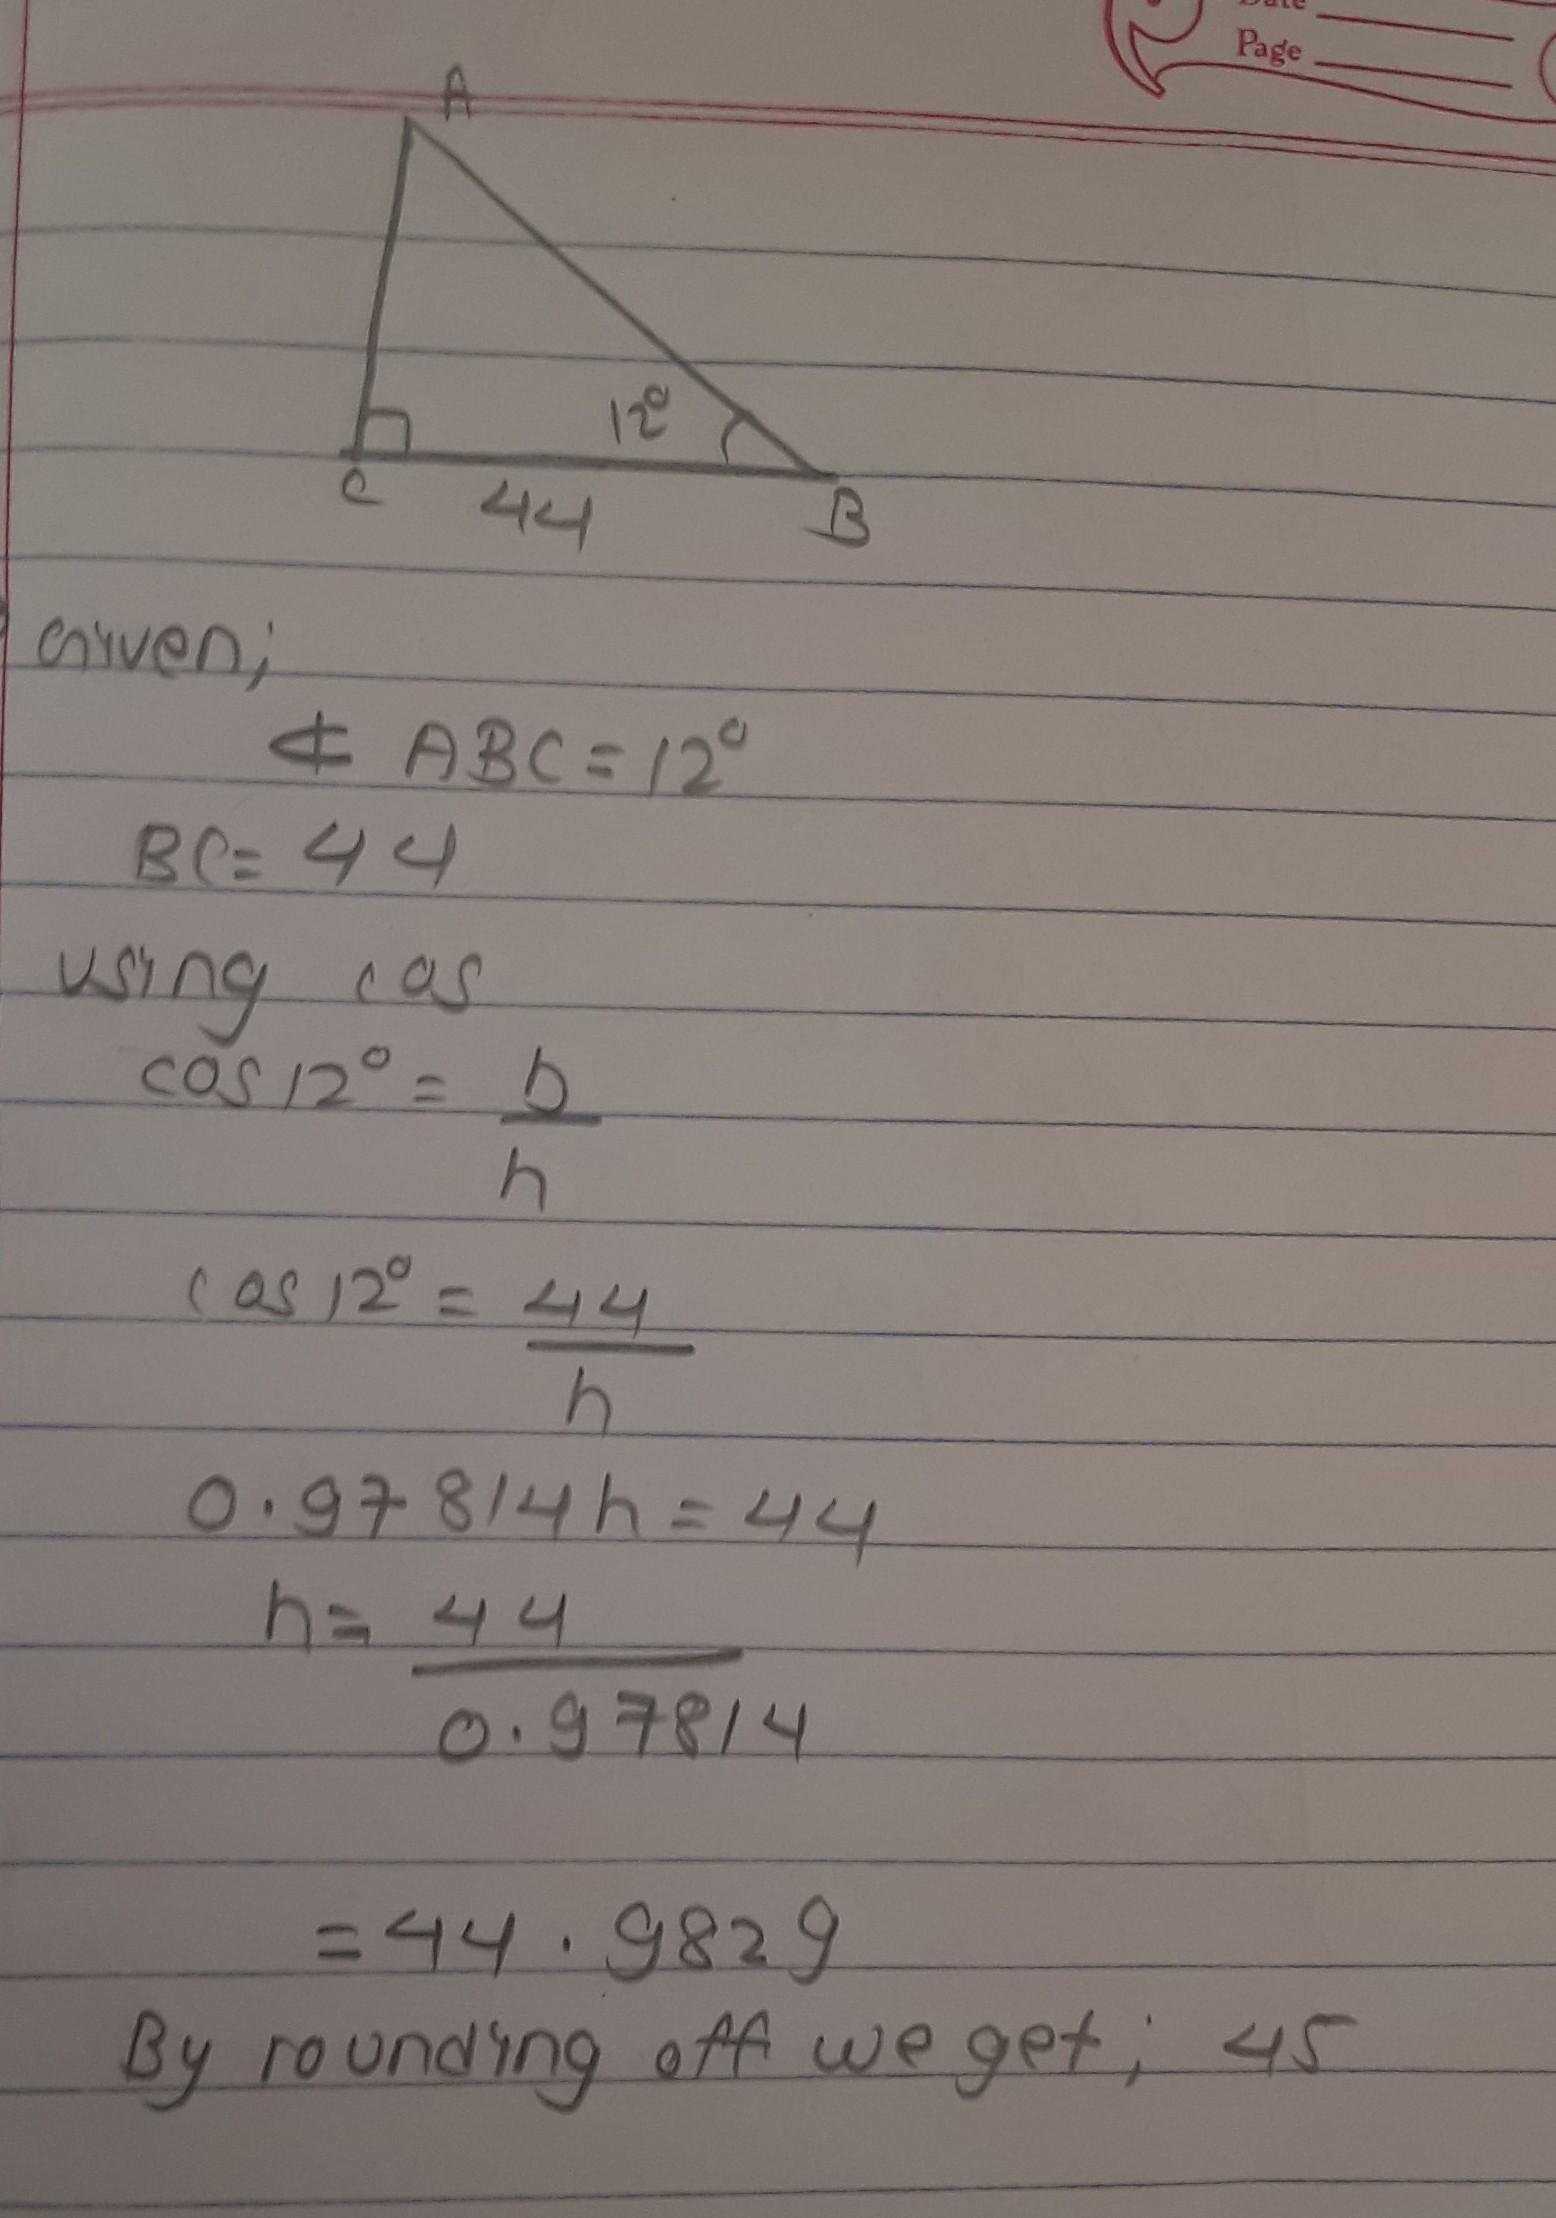 Date
Page
A
12°
C
44
B
Given;
∡ ABC = 12°
BC = 44
using cos
cos 12° = b
h
cos 12° = 44
h
0.97814h = 44
h = 44
0.97814
= 44.9829
By rounding off we get; 45